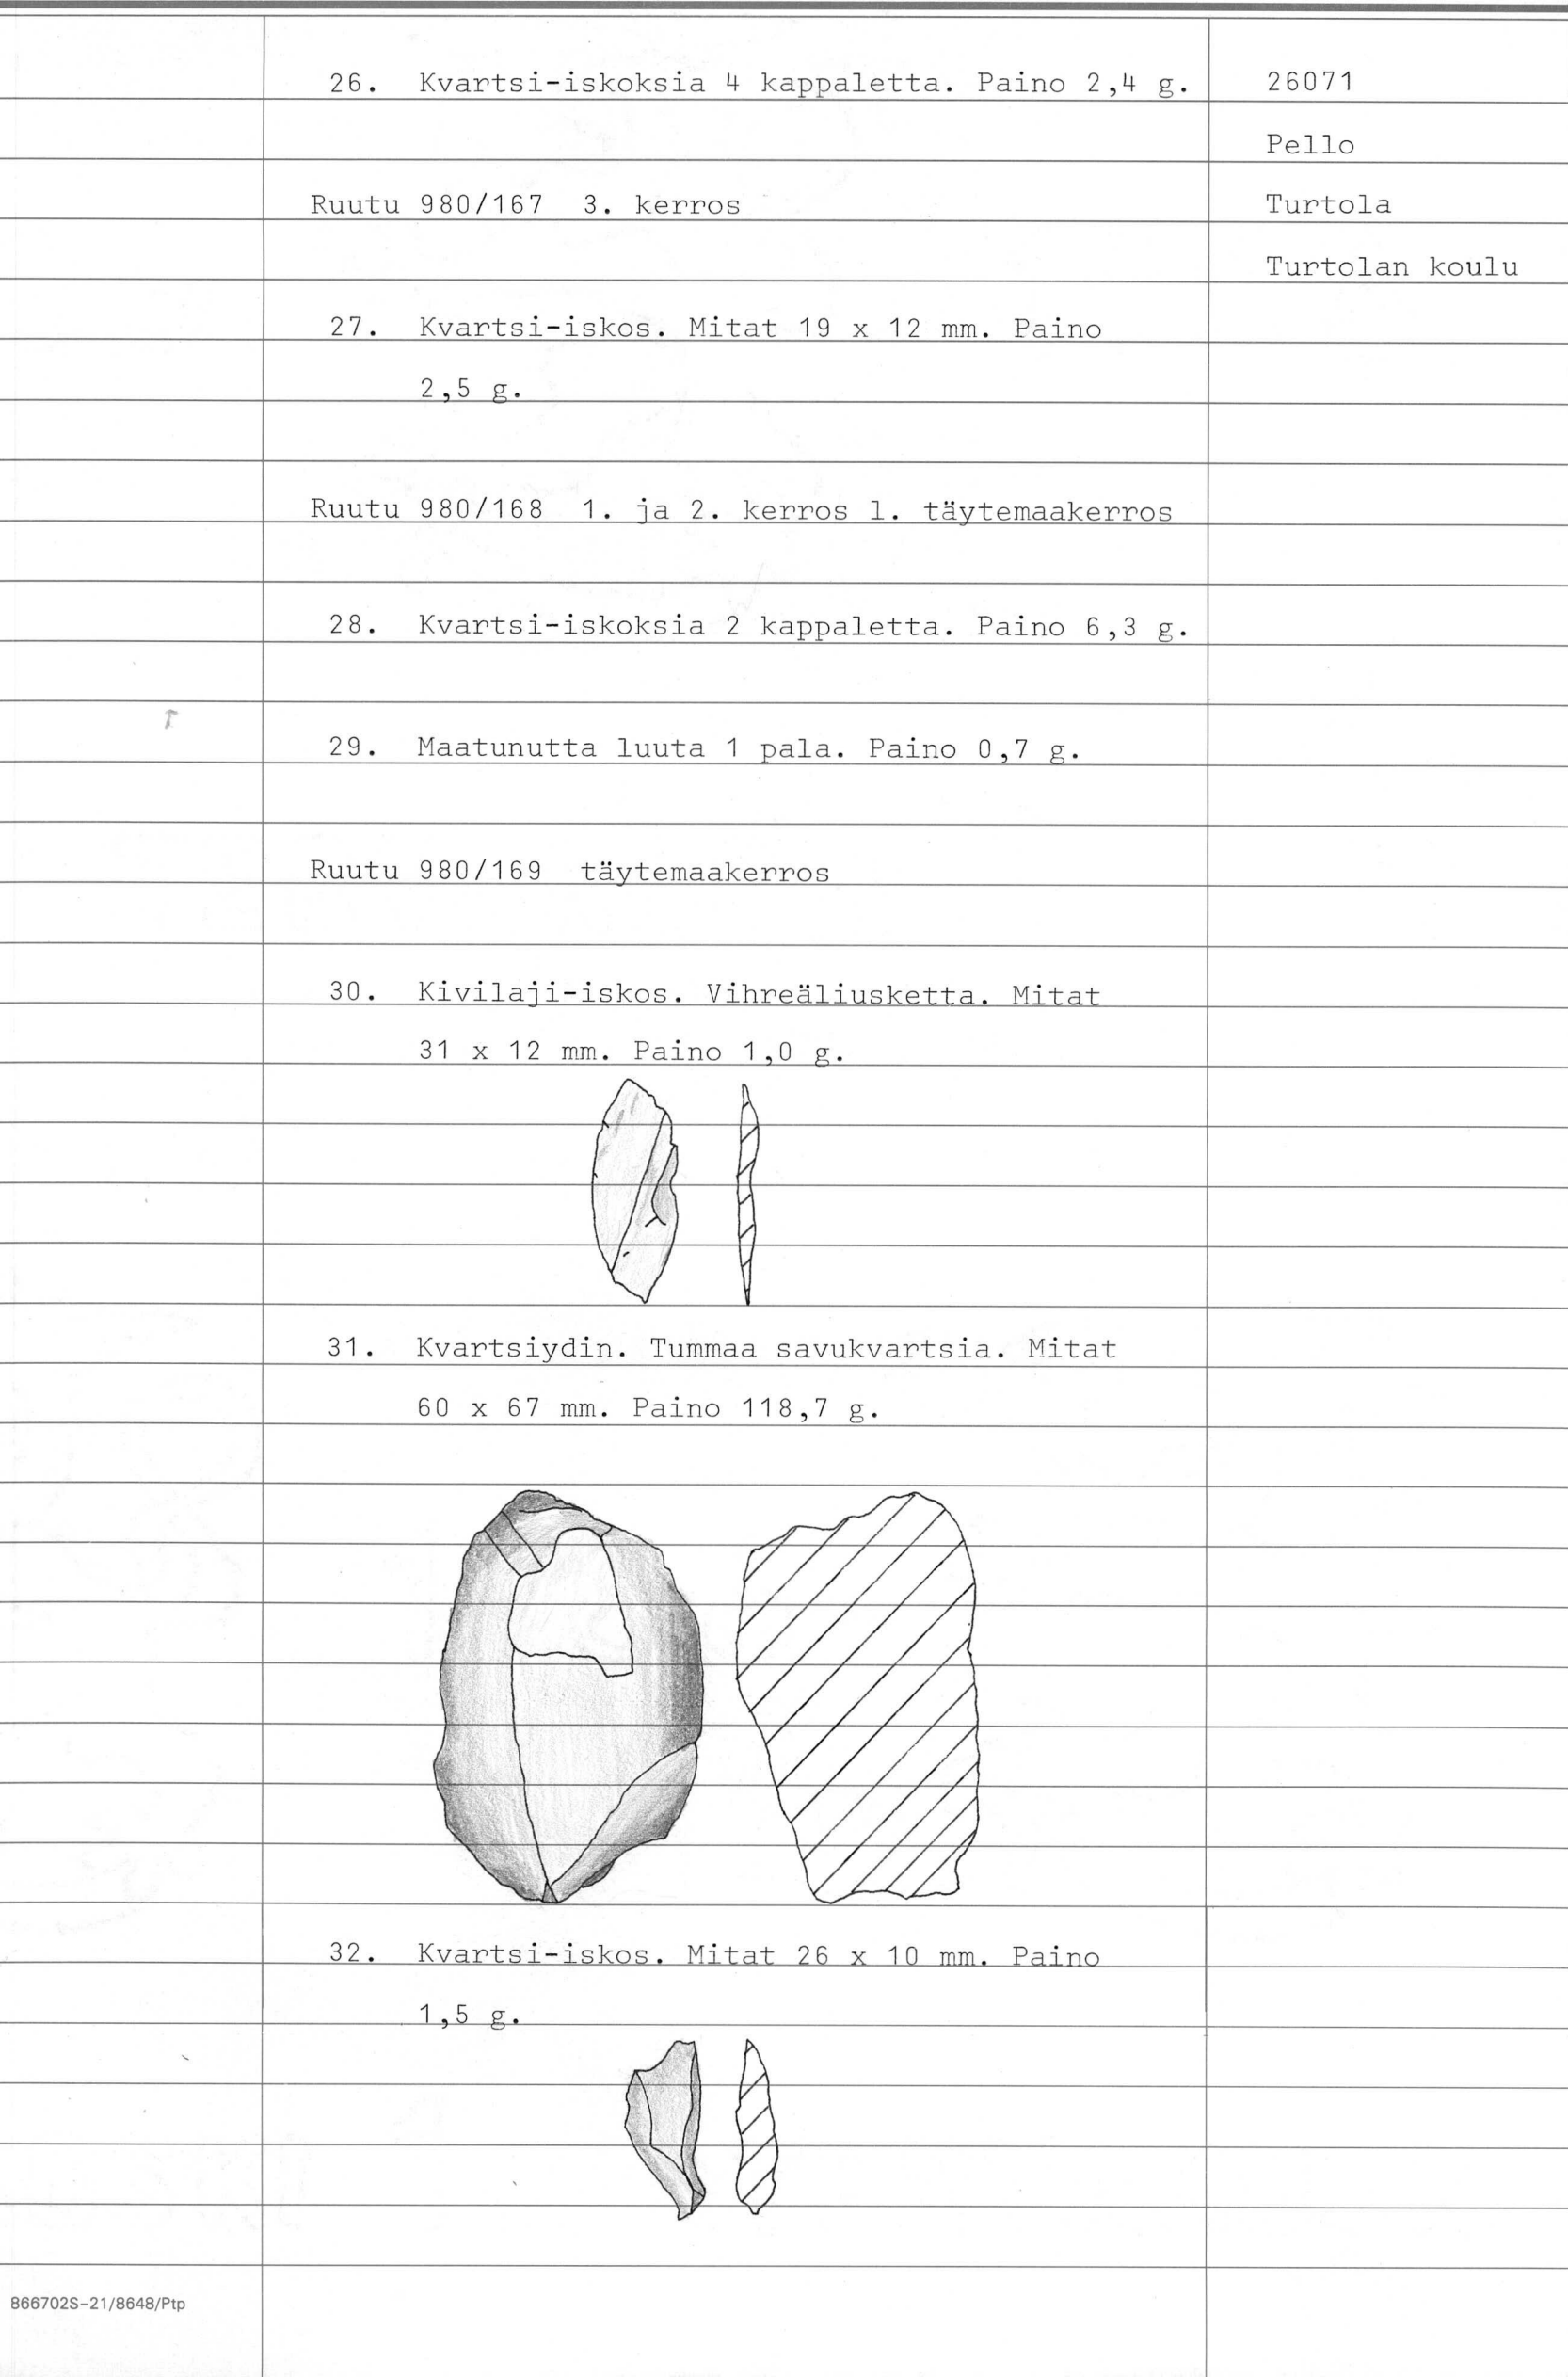 26. Kvartsi-iskoksia 4 kappaletta. Paino 2,4 g.
26071
Pello
Turtola
Turtolan koulu
Ruutu 980/167 3. kerros
27. Kvartsi-iskos. Mitat 19 x 12 mm. Paino
2,5 g.
Ruutu 980/168 1. ja 2. kerros l. täytemaakerros
28. Kvartsi-iskoksia 2 kappaletta. Paino 6,3 g.
29. Maatunutta luuta 1 pala. Paino 0,7 g.
Ruutu 980/169 täytemaakerros
30. Kivilaji-iskos. Vihreäliusketta. Mitat
31 x 12 mm. Paino 1,0 g.
31. Kvartsiydin. Tummaa savukvartsia. Mitat
60 x 67 mm. Paino 118,7 g.
32. Kvartsi-iskos. Mitat 26 x 10 mm. Paino
1,5 g.
866702S-21/8648/Ptp